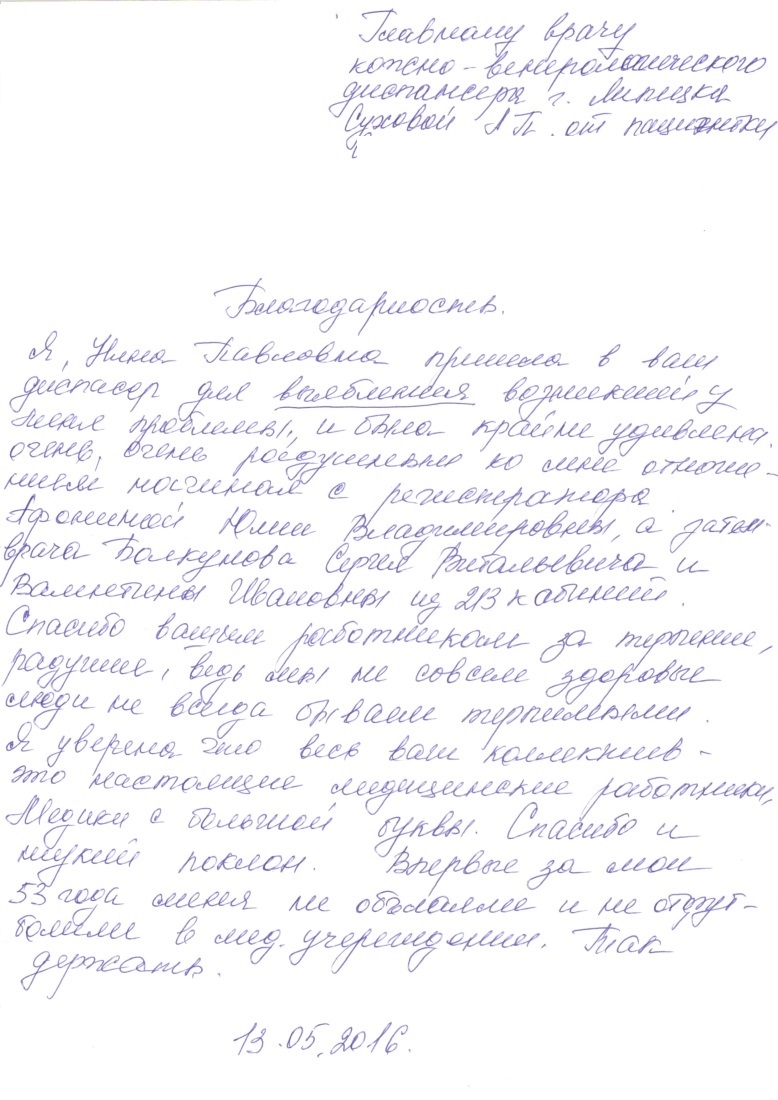 Главному врачу
кожно-венерологического
диспансера г. Липецка
Суховой Л П. от пациентки
Благодарность.
Я, Нина Павловна пришла в ваш
диспасер для выявления возникшей у
меня проблемы, и была крайне удивлена
очень, очень радушным ко мне отноше-
нием начиная с регистратора
Афониной Юлии Владимировны, а затем
врача Болкунова Сергея Витальевича и
Валентины Ивановны из 213 кабинета.
Спасибо вашим работникам за терпение,
радушие, ведь мы не совсем здоровые
люди не всегда бываем терпимыми.
Я уверена что весь ваш коллектив -
это настоящие медицинские работники,
Медики с большой буквы. Спасибо и
низкий поклон. Впервые за мои
53 года меня не облаяли и не отфут-
болили в мед. учереждении. Так
держать.
13.05.2016.